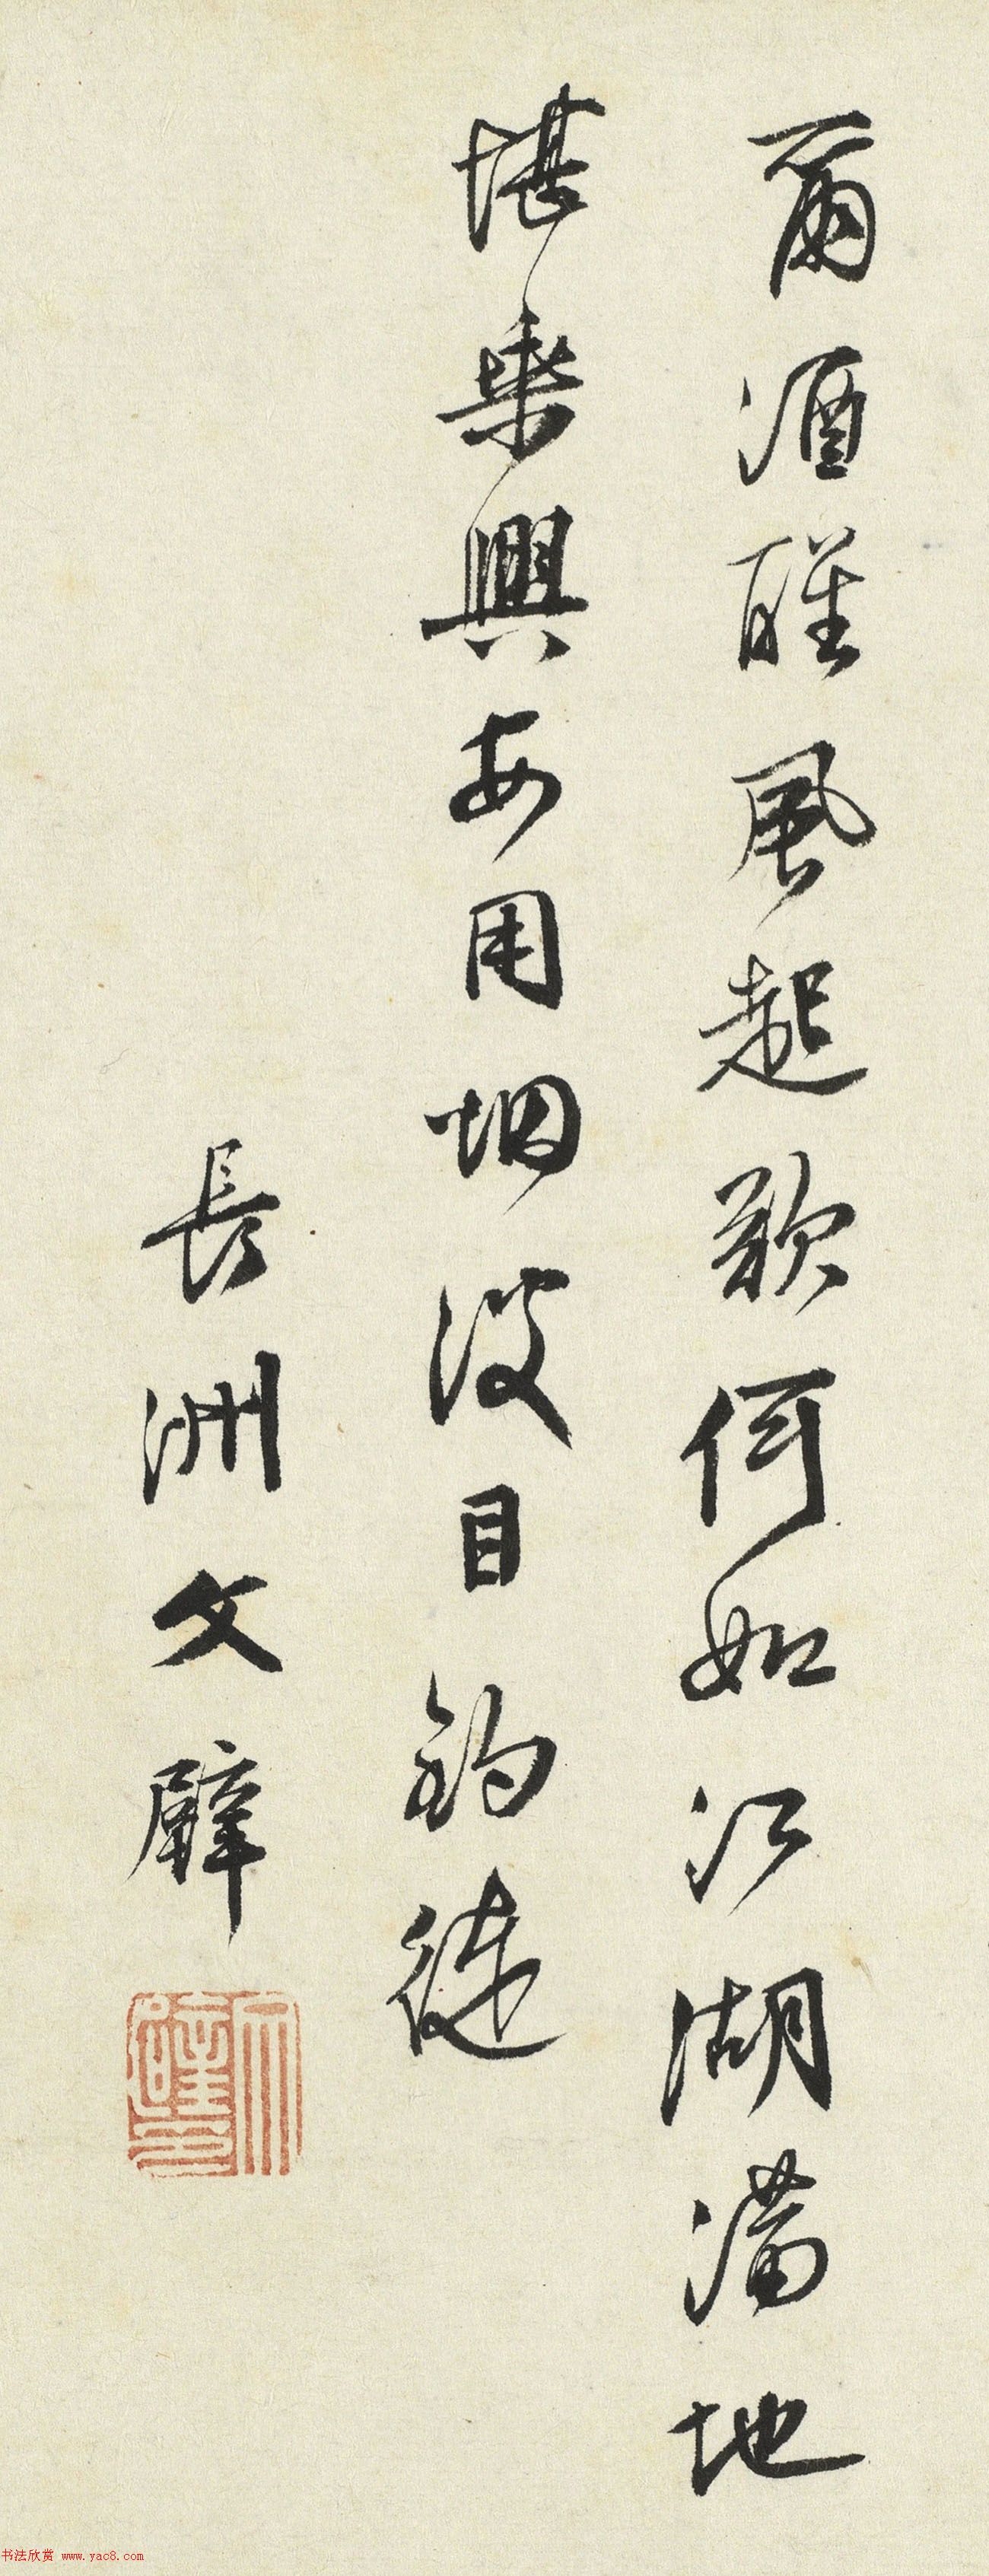 爾酒醒風起歌何如江湖滿地
堪乘興安用烟波目釣徒
長洲文壁
书法欣赏 www.yac8.com